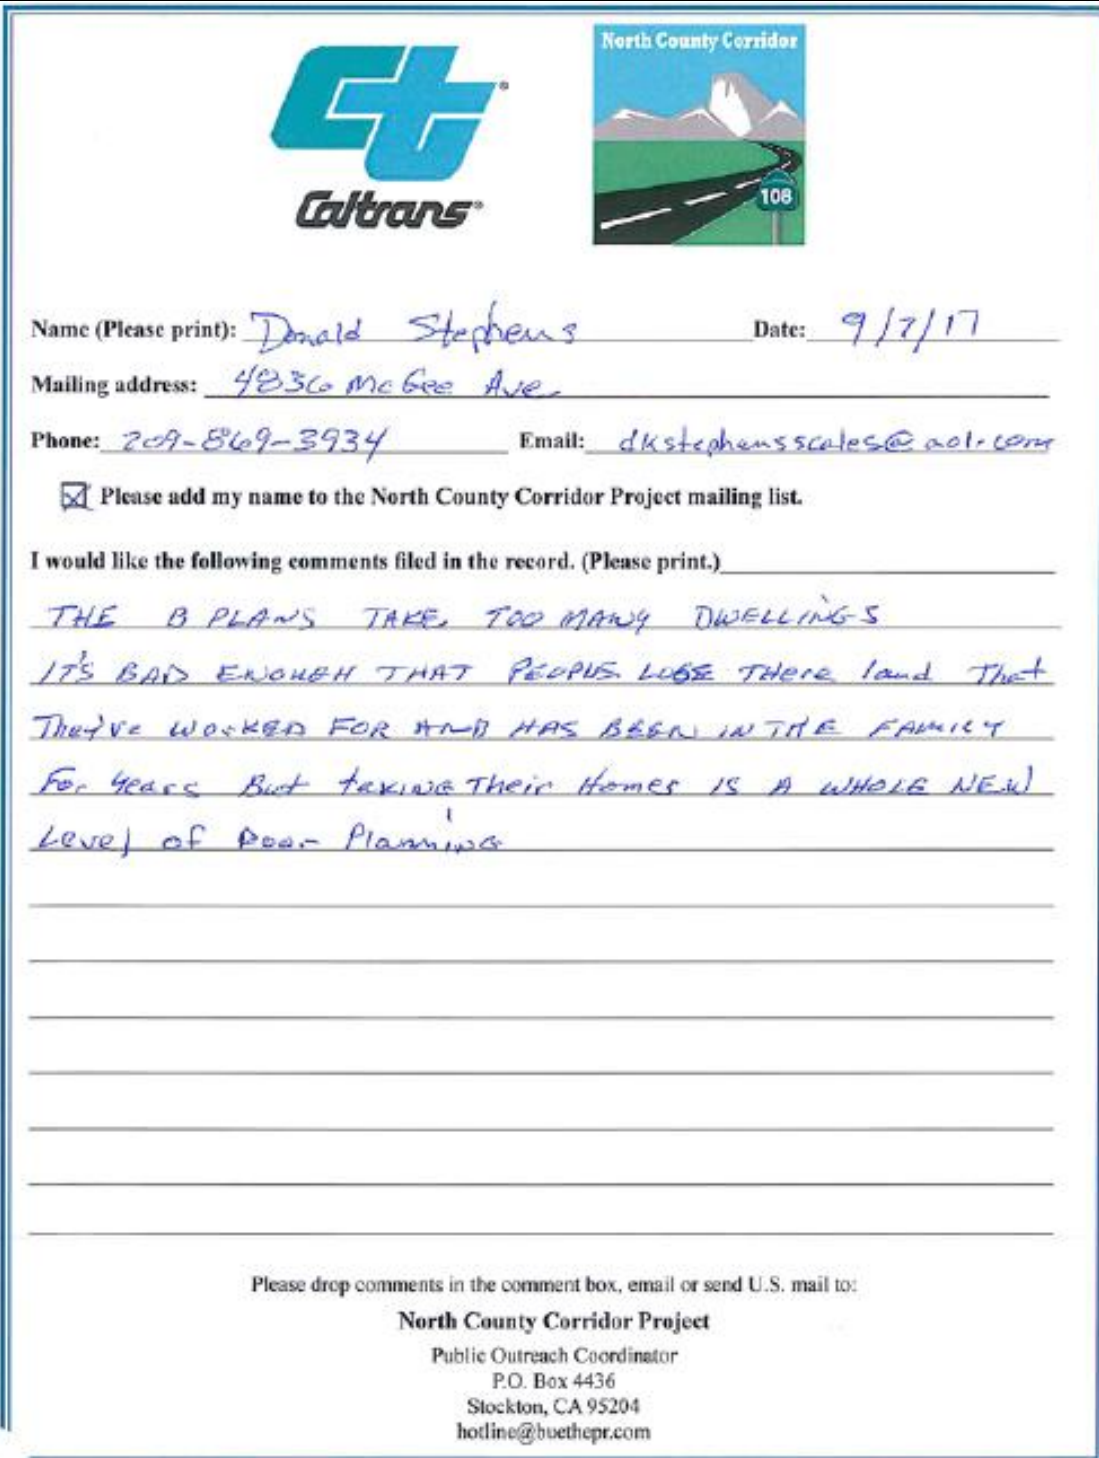 Caltrans®
North County Corridor
108
Name (Please print): Donald Stephens Date: 9/7/17
Mailing address: 4836 McGee Ave.
Phone: 209-869-3934 Email: dkstephensscales@aol.com
Please add my name to the North County Corridor Project mailing list.
I would like the following comments filed in the record. (Please print.)
THE B PLANS TAKE, TOO MANY DWELLINGS
IT'S BAD ENOUGH THAT PEOPLE LOSE THere land That
They've WORKED FOR AND HAS BEEN IN THE FAMILY
For years But taKING Their Homes IS A WHOLE NEW
Level of Poor PlannING
Please drop comments in the comment box, email or send U.S. mail to:
North County Corridor Project
Public Outreach Coordinator
P.O. Box 4436
Stockton, CA 95204
hotline@buethepr.com